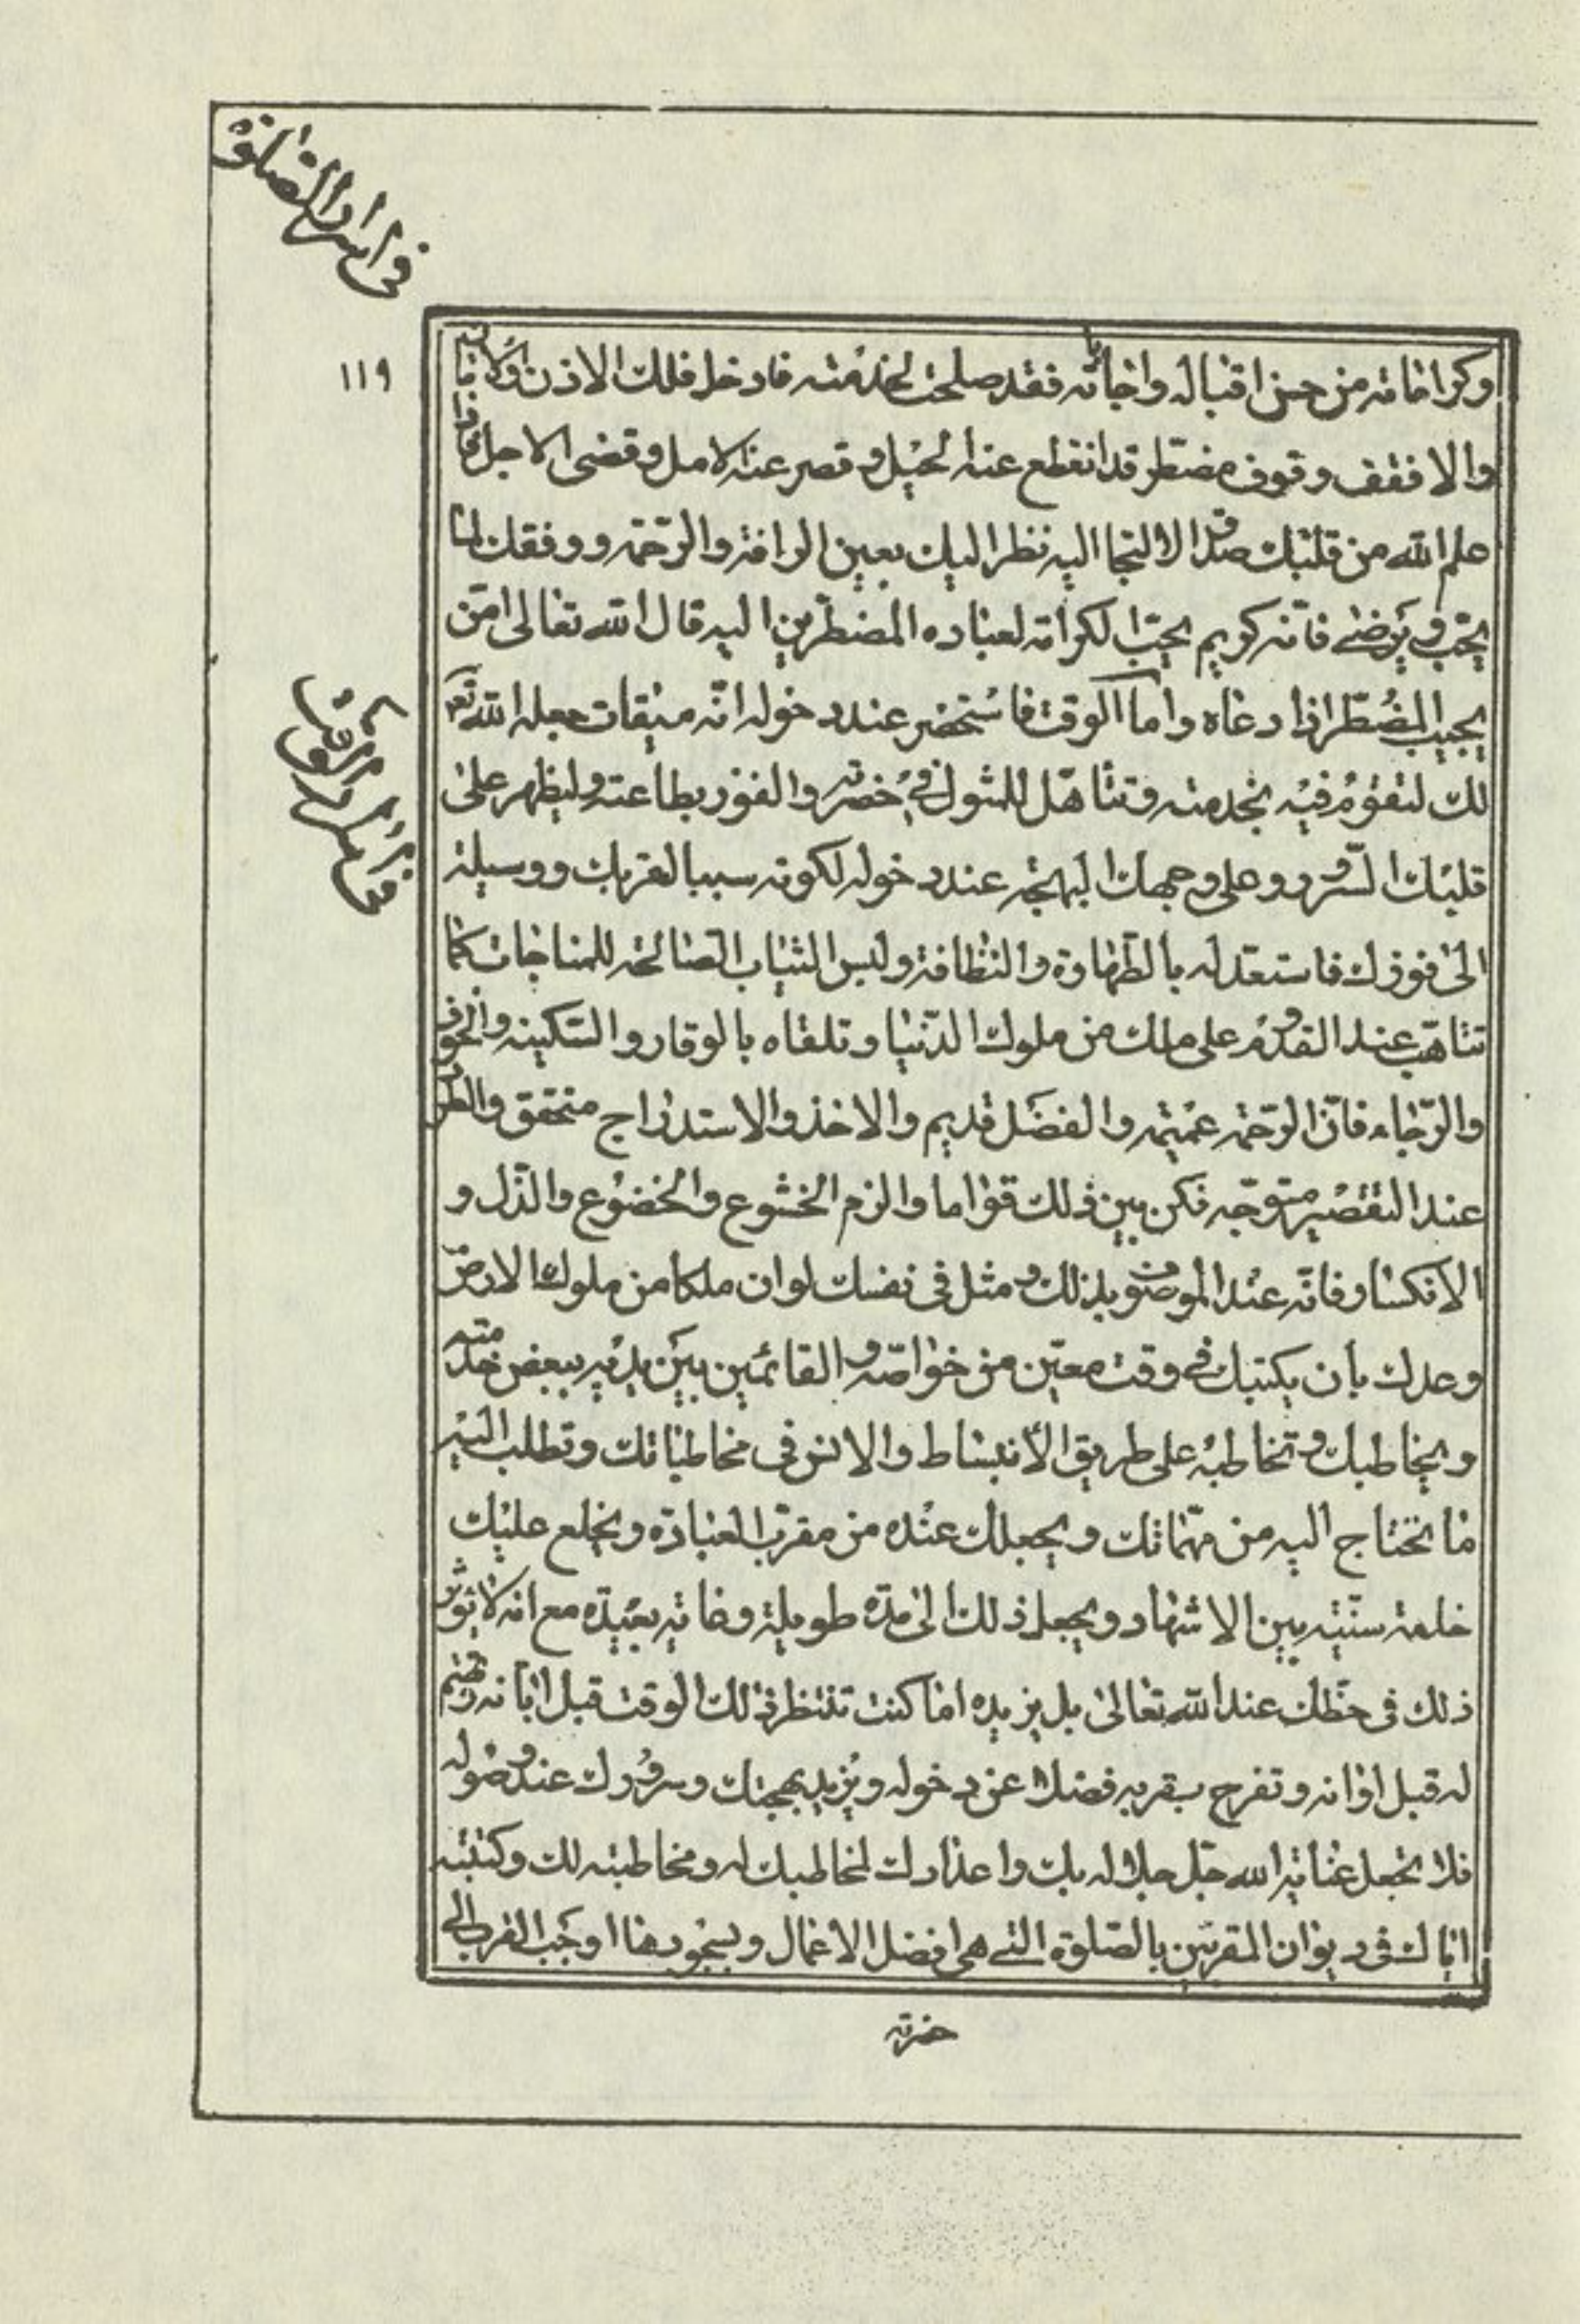 في اسرار الصلوة
١١٩
وكراماته من حسن اقباله واجابته فقد صلحت لخدمته فادخل فلك الاذن والامان
والا فقف وقوف مضطر قد انقطع عنه الحيل وقصر عنه الامل وقضى الاجل فاذا
علم الله من قلبك صدق الالتجا اليه نظر اليك بعين الرافة والرحمة ووفقك لما
يحب ويرضى فانه كريم يحب الكرامة لعباده المضطرين اليه قال الله تعالى امن
يجيب المضطر اذا دعاه واما الوقت فاستحضر عند دخوله انه ميقات جعله الله تعالى
لك لتقوم فيه بخدمته وتتاهل للمثول في حضرته والفوز بطاعته وليظهر على
قلبك السرور وعلى وجهك البهجة عند دخوله لكونه سببا لقربك ووسيلة
الى فوزك فاستعد له بالطهارة والنظافة ولبس الثياب الصالحة للمناجات كما
تتاهب عند القدوم على ملك من ملوك الدنيا وتلقاه بالوقار والسكينة والخوف
والرجاء فان الرحمة عميمة والفضل قديم والاخذ والاستدراج متحقق والطرد
عند التقصير متوجه فكن بين ذلك قواما والزم الخشوع والخضوع والذل و
الانكسار فانه عند الموصوف بذلك ومثل في نفسك لو ان ملكا من ملوك الارض
وعدك بان يكتبك في وقت معين من خواصه والقائمين بين يديه ببعض خدمته
ويخاطبك وتخاطبه على طريق الانبساط والانس في مخاطباتك وتطلب اليه
ما تحتاج اليه من مهماتك ويجعلك عنده من مقرب العبادة ويخلع عليك
خلعة سنية بين الاشهاد ويجعل ذلك الى مدة طويلة وغاية بعيدة مع انه لا يؤثر
ذلك في حظك عند الله تعالى بل يزيده اما كنت تنتظر ذلك الوقت قبل ابانه وتهتم
له قبل اوانه وتفرح بقربه فضلا عن دخوله ويزيد بهجتك وسرورك عند وصوله
فلا تجعل عناية الله جل جلاله بك واعذارك لمخاطبك له ومخاطبته لك وكتبته
اياك في ديوان المقربين بالصلوة التي هي افضل الاعمال وبسجودها اوجب القرب الى
حضرته